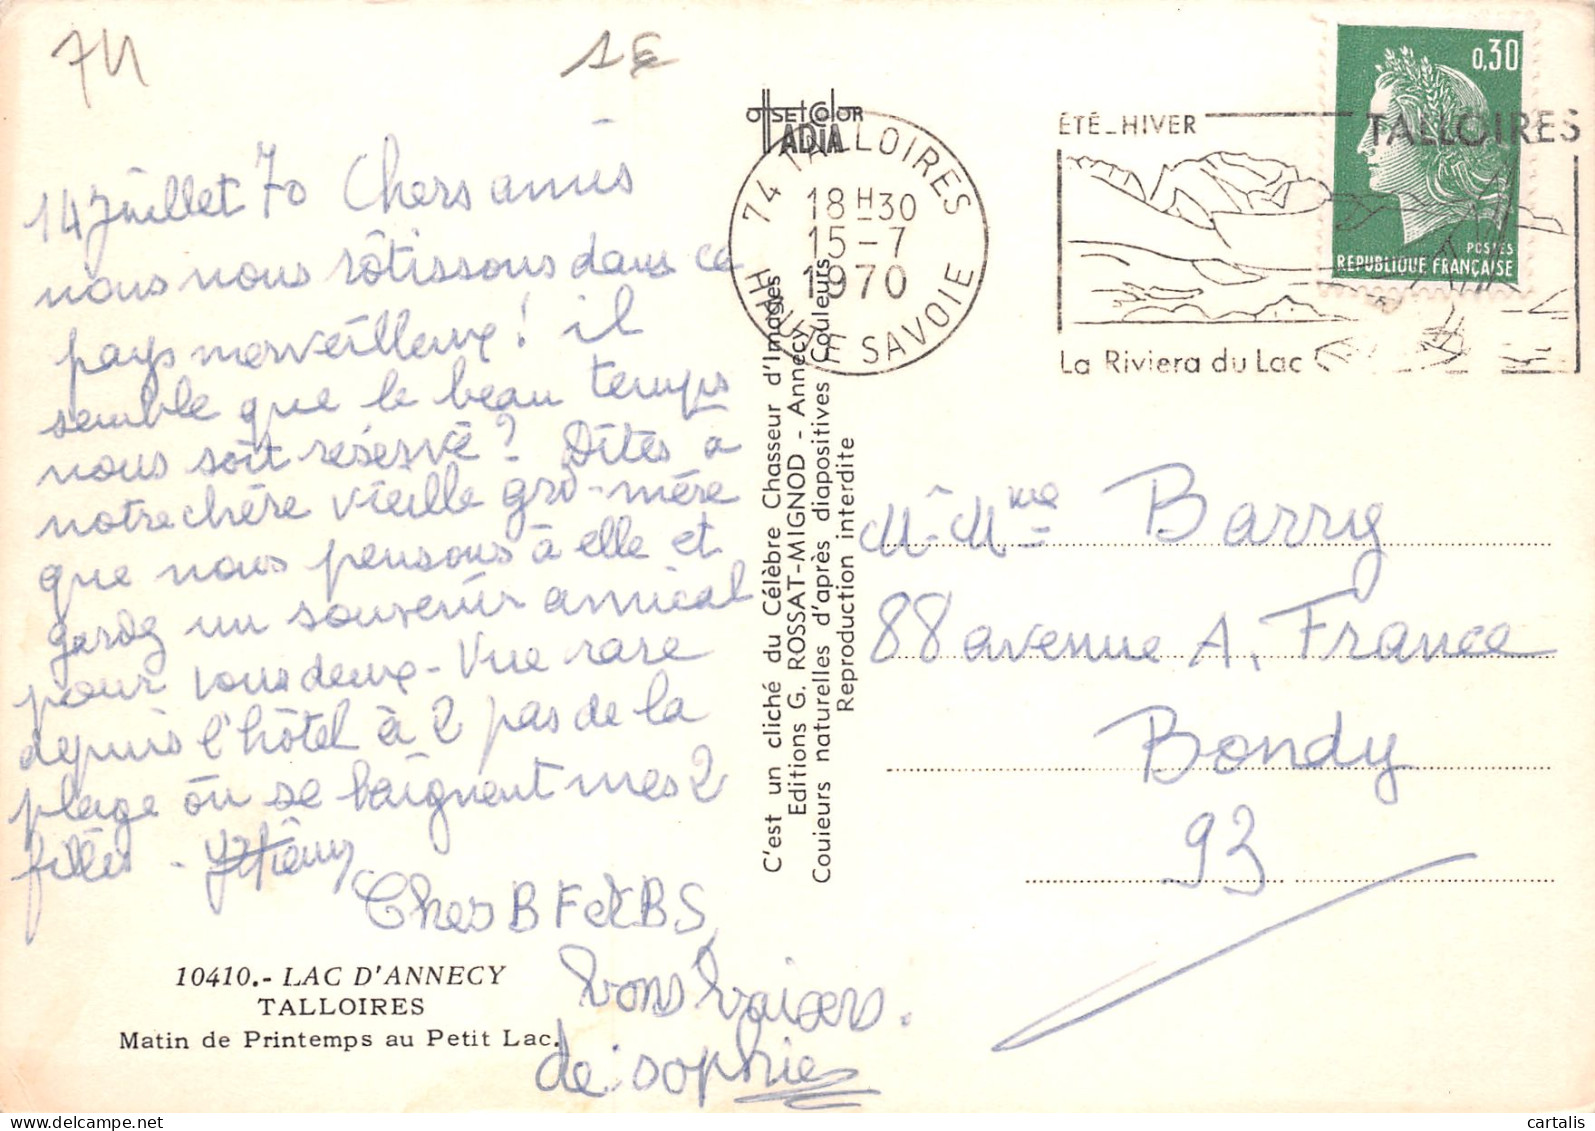 74
1€
14 Juillet 70 Chers amis
nous nous rôtissons dans ce
pays merveilleux ! il
semble que le beau temps
nous soit réservé ? Dîtes à
notre chère vieille grd-mère
que nous pensons à elle et
gardez un souvenir amical
pour vous deux - Vue rare
depuis l'hôtel à 2 pas de la
plage où se baignent mes 2
filles -
Cher B F et B S,
bons baisers.
de: sophie
10410.- LAC D'ANNECY
TALLOIRES
Matin de Printemps au Petit Lac.
OffSET COlOR
ADIA
C'est un cliché du Célèbre Chasseur d'Images
Editions G. ROSSAT-MIGNOD - Annecy
Couleurs naturelles d'après diapositives Couleurs
Reproduction interdite
74 TALLOIRES
18 H 30
15 - 7
1970
HAUTE SAVOIE
ÉTÉ_HIVER
TALLOIRES
La Riviera du Lac
0,30
POSTES
REPUBLIQUE FRANÇAISE
Mr Mme Barry
88 avenue A. France
Bondy
93